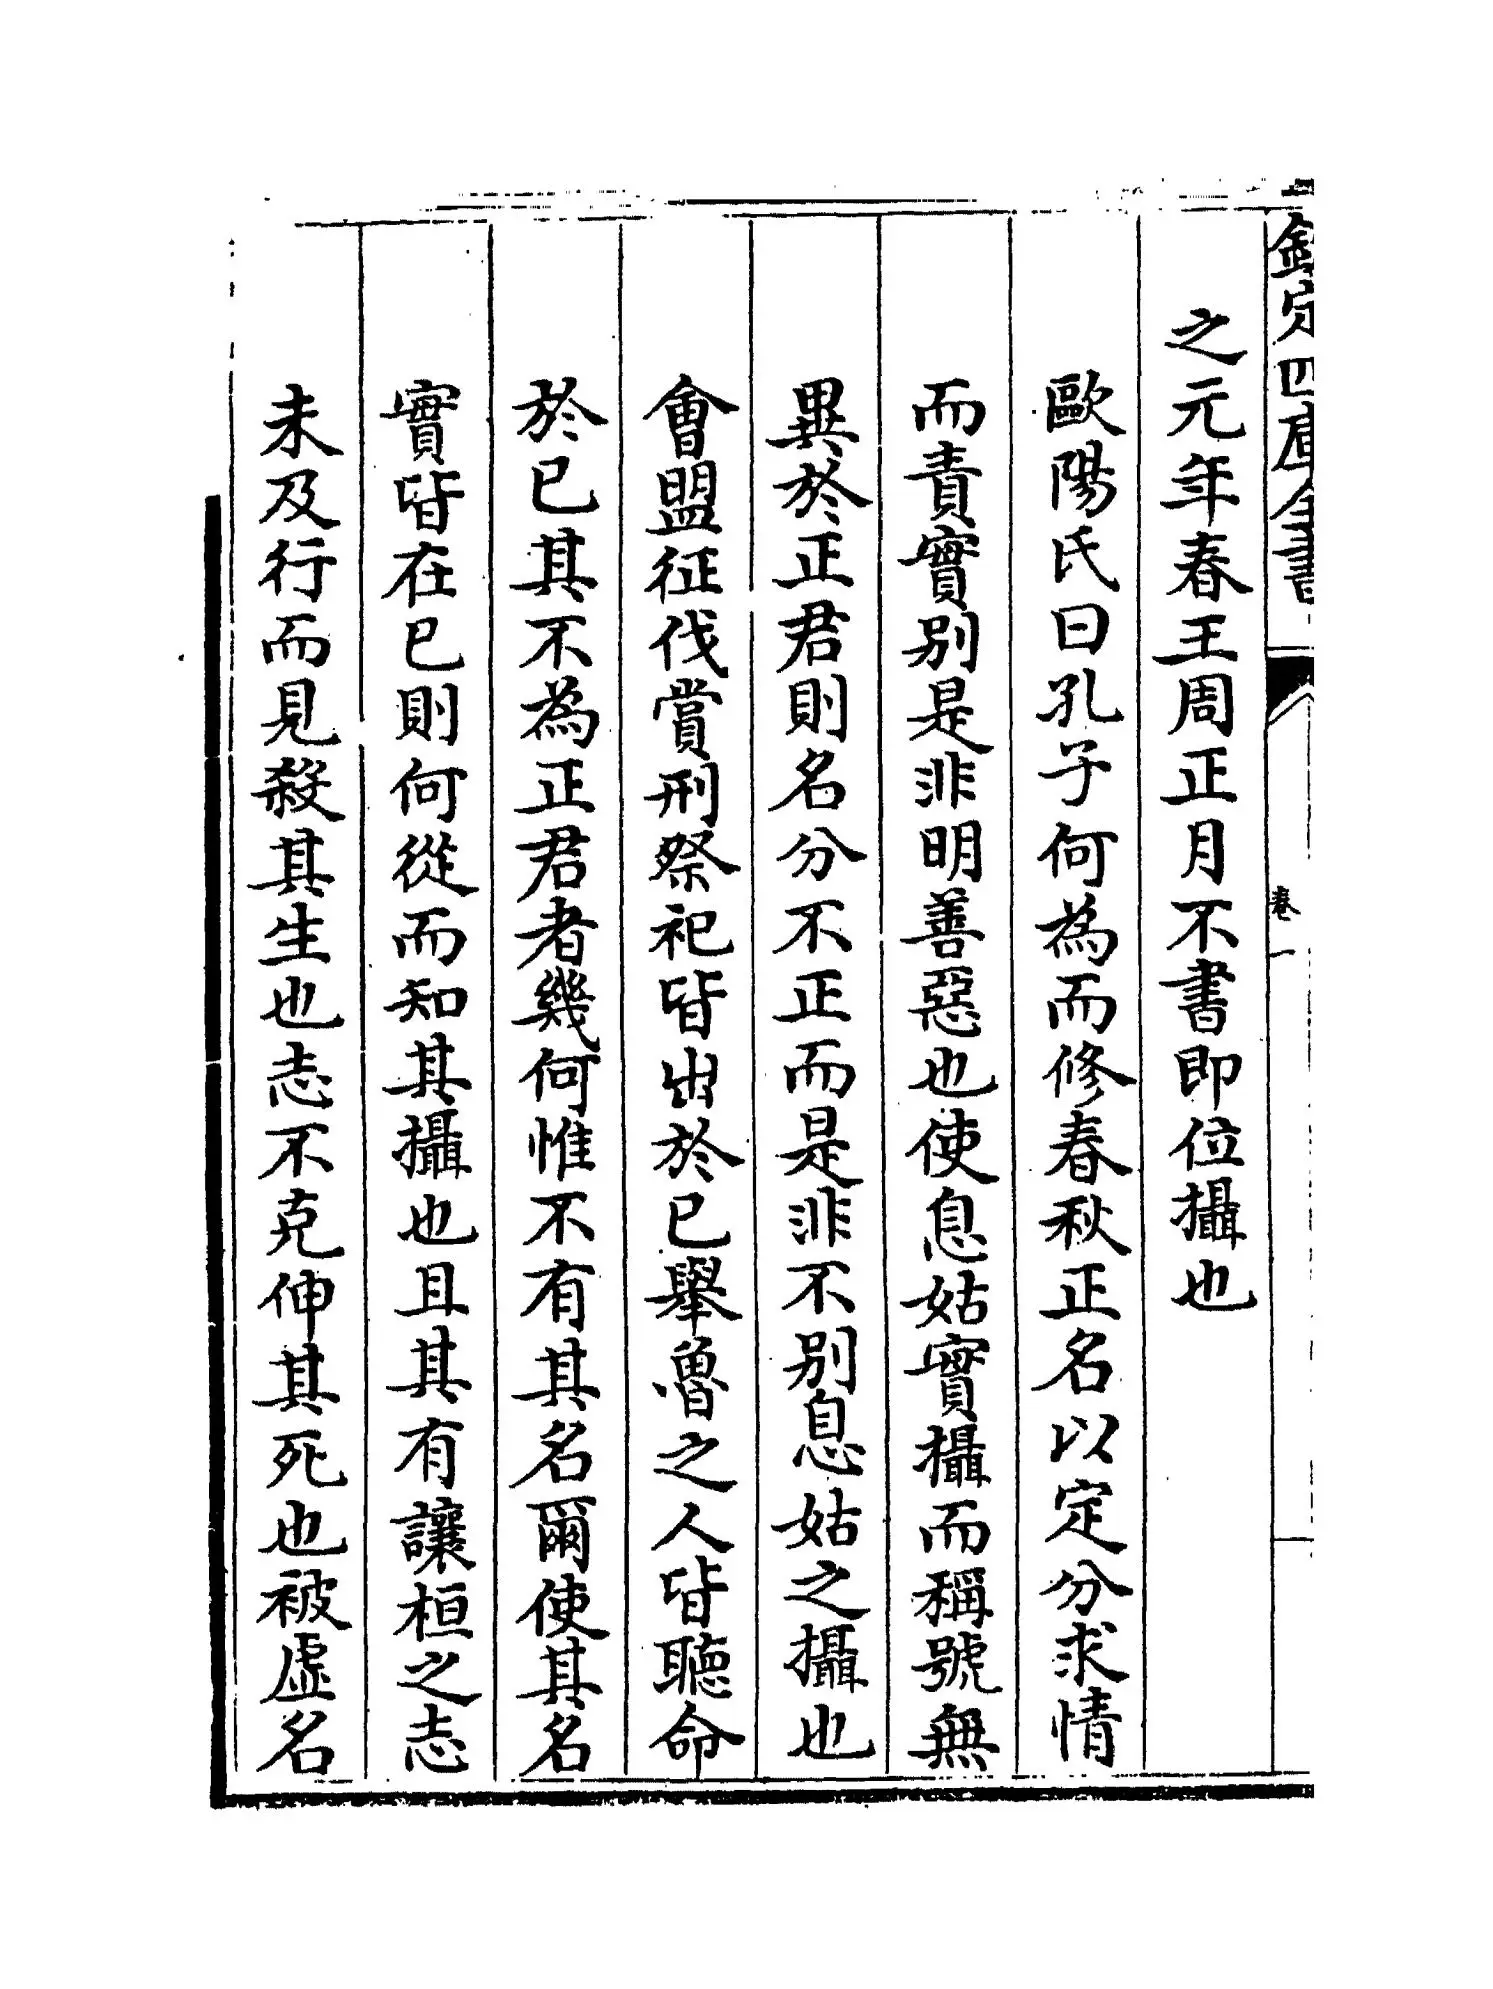 欽定四庫全書
卷一
之元年春王周正月不書即位攝也
歐陽氏曰孔子何為而修春秋正名以定分求情
而責實別是非明善惡也使息姑實攝而稱號無
異於正君則名分不正而是非不別息姑之攝也
會盟征伐賞刑祭祀皆出於已舉魯之人皆聽命
於已其不為正君者幾何惟不有其名爾使其名
實皆在已則何從而知其攝也且其有讓桓之志
未及行而見殺其生也志不克伸其死也被虛名